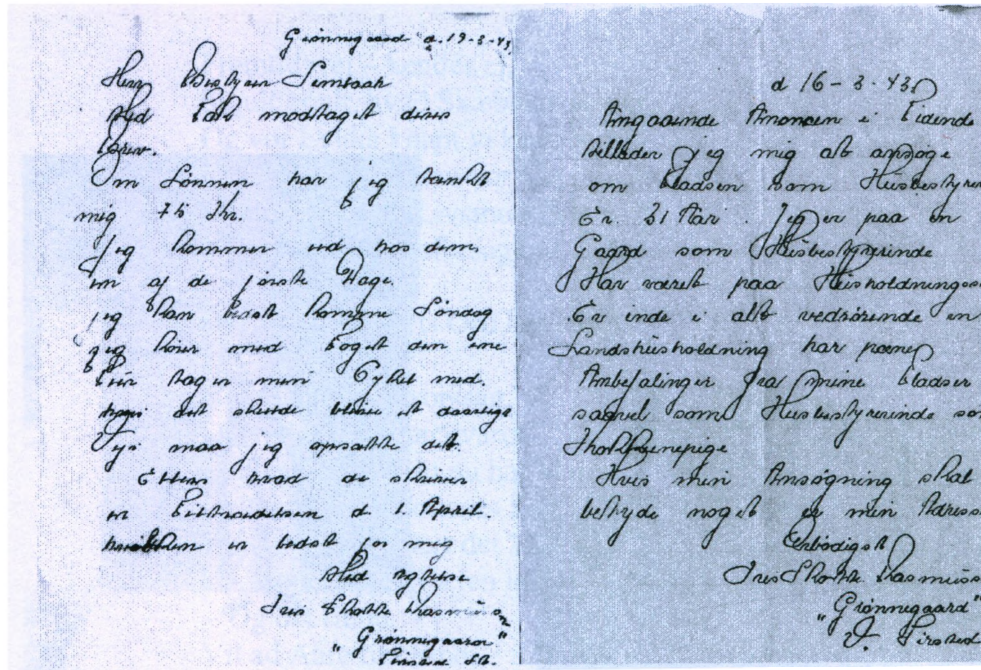 Grønnegaard d. 19-3-43.
Herr Bestyrer Simbæk
Med Tak modtaget deres
Brev.
Om Lønnen har jeg tænkt
mig 75 Kr.
Jeg kommer ud hos dem
en af de første Dage.
jeg kan bedst komme Søndag
jeg kører med Toget den ene
Tur tager min Cykel med.
det skulde blive et daarligt
Vejr maa jeg opsætte det.
Ellers hvad de skriver
er Tiltrædelsen d 1. April.
er bedst for mig
Med Agtelse
Rasmussen
"Grønnegaard"
d 16-3-43.
Angaaende Annoncen i Tidende
tillader jeg mig at ansøge
om Pladsen som Husbestyrer
Er. 31 Aar. Jeg er paa en
Gaard som Husbestyrerinde
Har været paa Husholdningss
Er inde i alt vedrørende en
Landshusholdning har pæne
Anbefalinger fra mine Pladser
saavel som Husbestyrerinde so
Hvis min Ansøgning skal
betyde noget er min Adress
Ærbødigst
Rasmuss
"Grønnegaard"